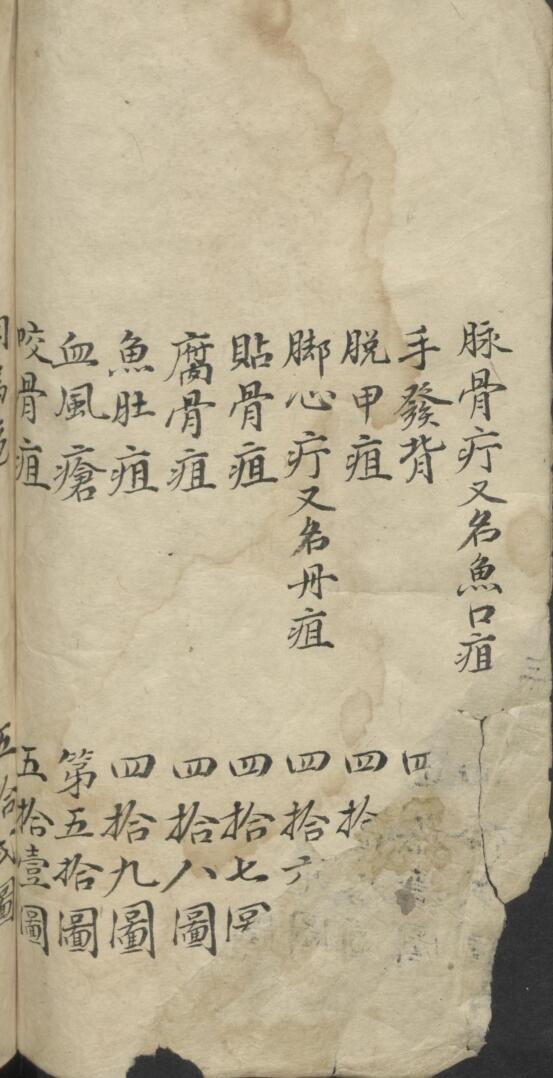 脉骨疔又名魚口疽
手發背 四
脱甲疽 四拾
脚心疔又名丹疽 四拾六
貼骨疽 四拾七
腐骨疽 四拾八圖
魚肚疽 四拾九圖
血風瘡 第五拾圖
咬骨疽 五拾壹圖